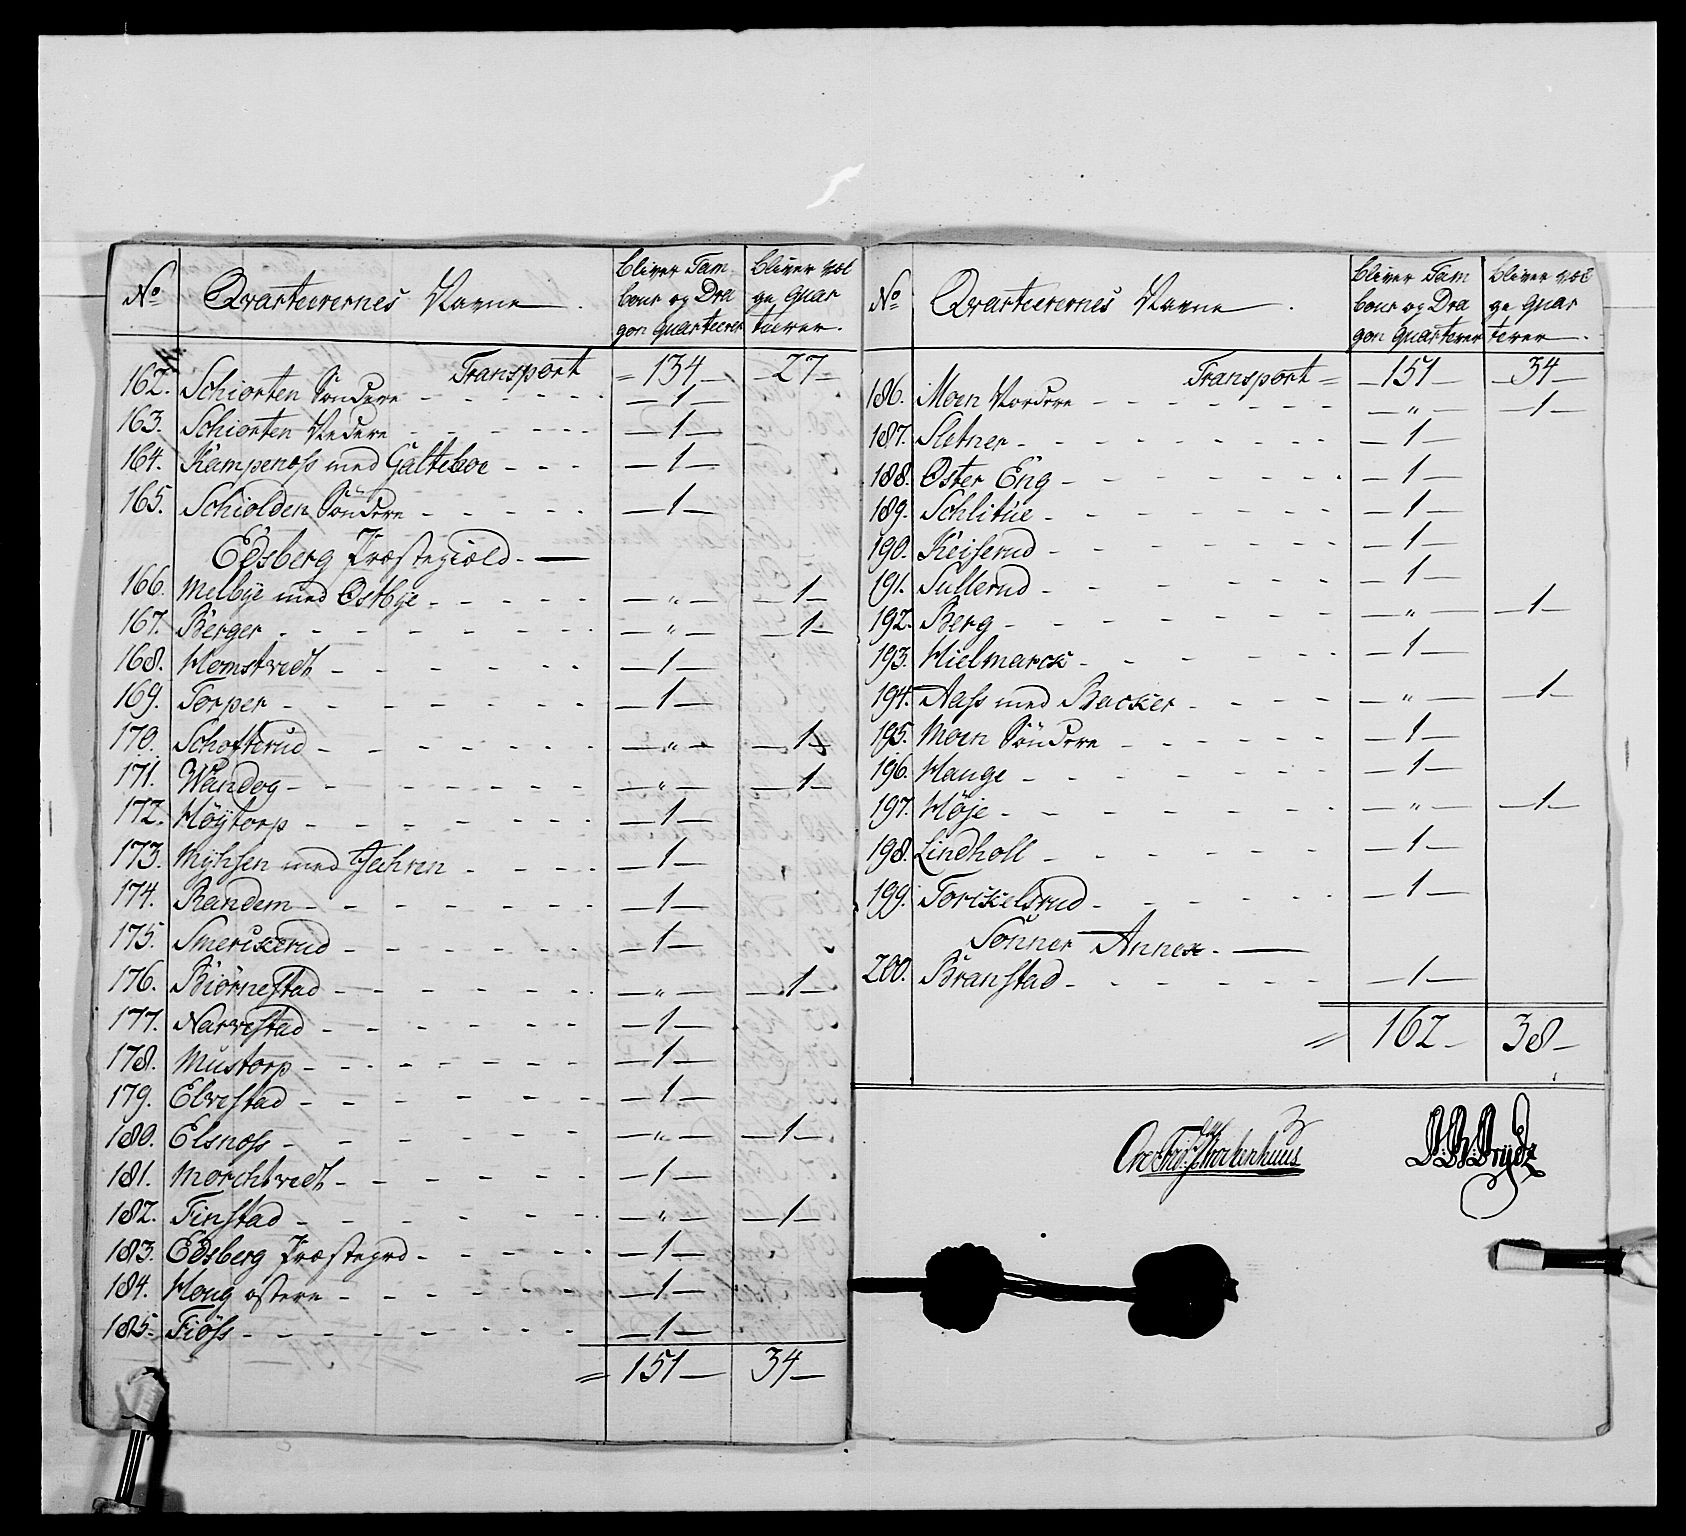 No Qvarteerernes Navne. bliver Tam bour og Dra gon quarteerer bliver væl ge quar teerer.
Transport = 134 — 27 —
162. Schiorten Söndere — 1 —
163. Schiorten Nedere — 1 —
164. Kampenoss med Galteboe — 1 —
165. Schiolden Söndere — 1 —
Edsberg Præstegiæld. —
166. Melbye med Østbye — „ — — 1 —
167. Berger — „ — — 1 —
168. Homstvedt — 1 —
169. Torper — 1 —
170. Schofterud — „ — — 1 —
171. Wandog — „ — — 1 —
172. Höytorp — 1 —
173. Myhsen med Jahren — 1 —
174. Randem — 1 —
175. Smerckerud — 1 —
176. Biörnestad — „ — — 1 —
177. Narvestad — 1 —
178. Mustorp — 1 —
179. Elvestad — 1 —
180. Elsnoss — „ — — 1 —
181. Morchtvedt — 1 —
182. Finstad — „ — — 1 —
183. Edsberg Præstegrd — 1 —
184. Houg østere — 1 —
185. Fiöss — 1 —
= 151 — 34 —
No Qvarteerernes Navne. bliver Tam bour og Dra gon quarterer bliver væl ge quar terer.
Transport = — 151 — — 34 —
186. Moen Nordere — „ — — 1 —
187. Sletner — 1 —
188. Oster Eng — 1 —
189. Schlitue — 1 —
190. Keiserud — 1 —
191. Sullerud — 1 —
192. Berg — „ — — 1 —
193. Hielmarck — 1 —
194. Aass med Backer — „ — — 1 —
195. Moen Söndere — 1 —
196. Hauge — 1 —
197. Höje — „ — — 1 —
198. Lindholl — 1 —
199. Torckelsrud — 1 —
Tönner Annex. —
200. Branstad — 1 —
= 162 — 38 —